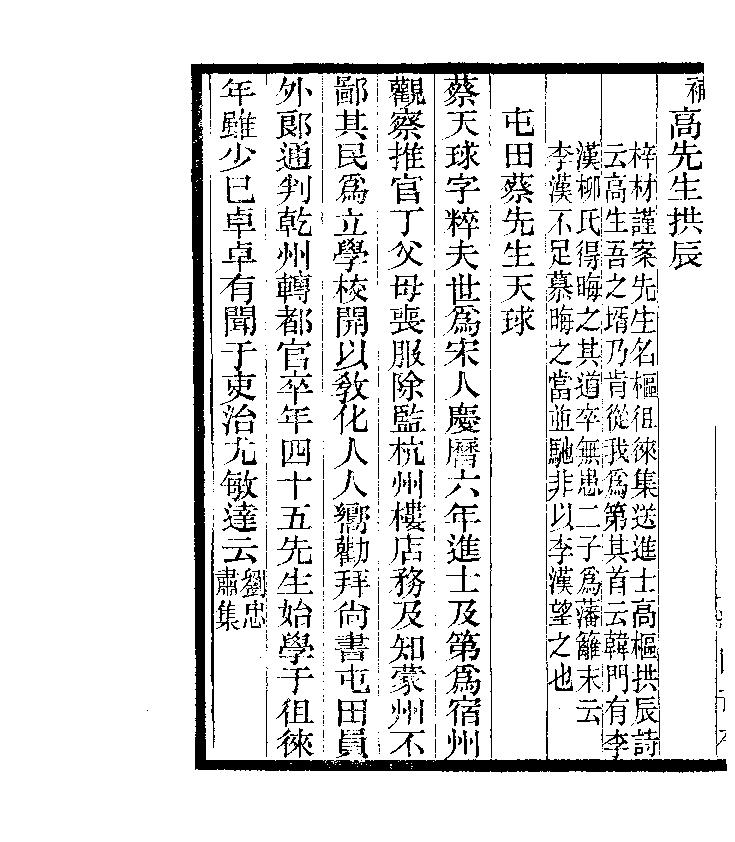 補高先生拱辰
梓材謹案先生名樞徂徠集送進士高樞拱辰詩
云高生吾之壻乃肯從我爲第其首云韓門有李
漢柳氏得晦之其道卒無患二子爲藩籬末云
李漢不足慕晦之當並馳非以李漢望之也
屯田蔡先生天球
蔡天球字粹夫世爲宋人慶曆六年進士及第爲宿州
觀察推官丁父母喪服除監杭州樓店務及知蒙州不
鄙其民爲立學校開以敎化人人嚮勸拜尙書屯田員
外郞通判乾州轉都官卒年四十五先生始學于徂徠
年雖少已卓卓有聞于吏治尤敏達云劉忠
肅集